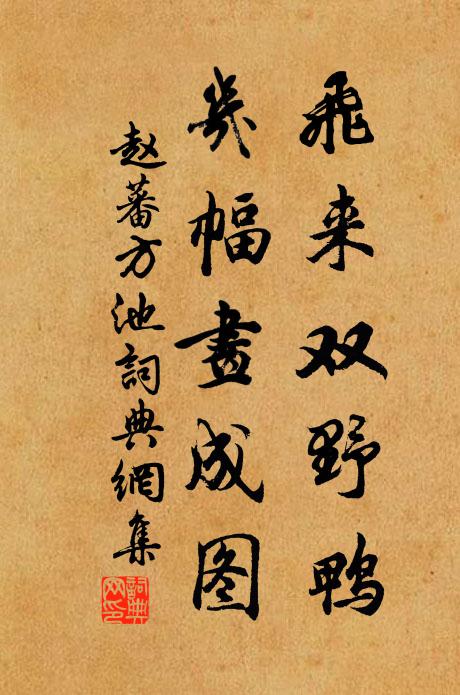 飛来双野鸭
幾幅畫成图
赵蕃方池詞典網集
詞典网印